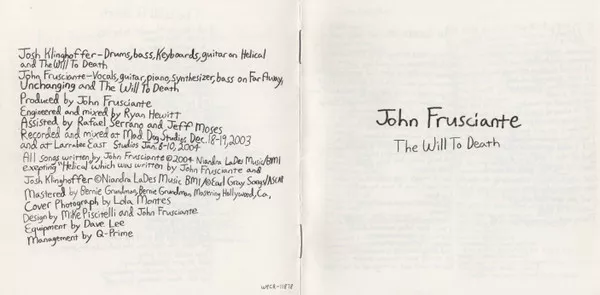 Josh Klinghoffer-Drums, bass, Keyboards, guitar on Helical
and The Will To Death
John Frusciante-Vocals, guitar, piano, synthesizer, bass on Far Away,
Unchanging and The Will To Death
Produced by John Frusciante
Engineered and mixed by Ryan Hewitt
Assisted by Rafael Serrano and Jeff Moses
Recorded and mixed at Mad Dog Studios Dec. 18-19, 2003
and at Larrabee East Studios Jan. 8-10, 2004
All songs written by John Frusciante © 2004 Niandra LaDes Music/BMI
exepting "Helical" which was written by John Frusciante and
Josh Klinghoffer © Niandra LaDes Music BMI/ Earl Grey Songs/ASCAP
Mastered by Bernie Grundman, Bernie Grundman Mastering Hollywood, Ca,
Cover Photograph by Lola Montes
Design by Mike Piscitelli and John Frusciante
Equipment by Dave Lee
Management by Q-Prime
WPCR-11878
John Frusciante
The Will To Death